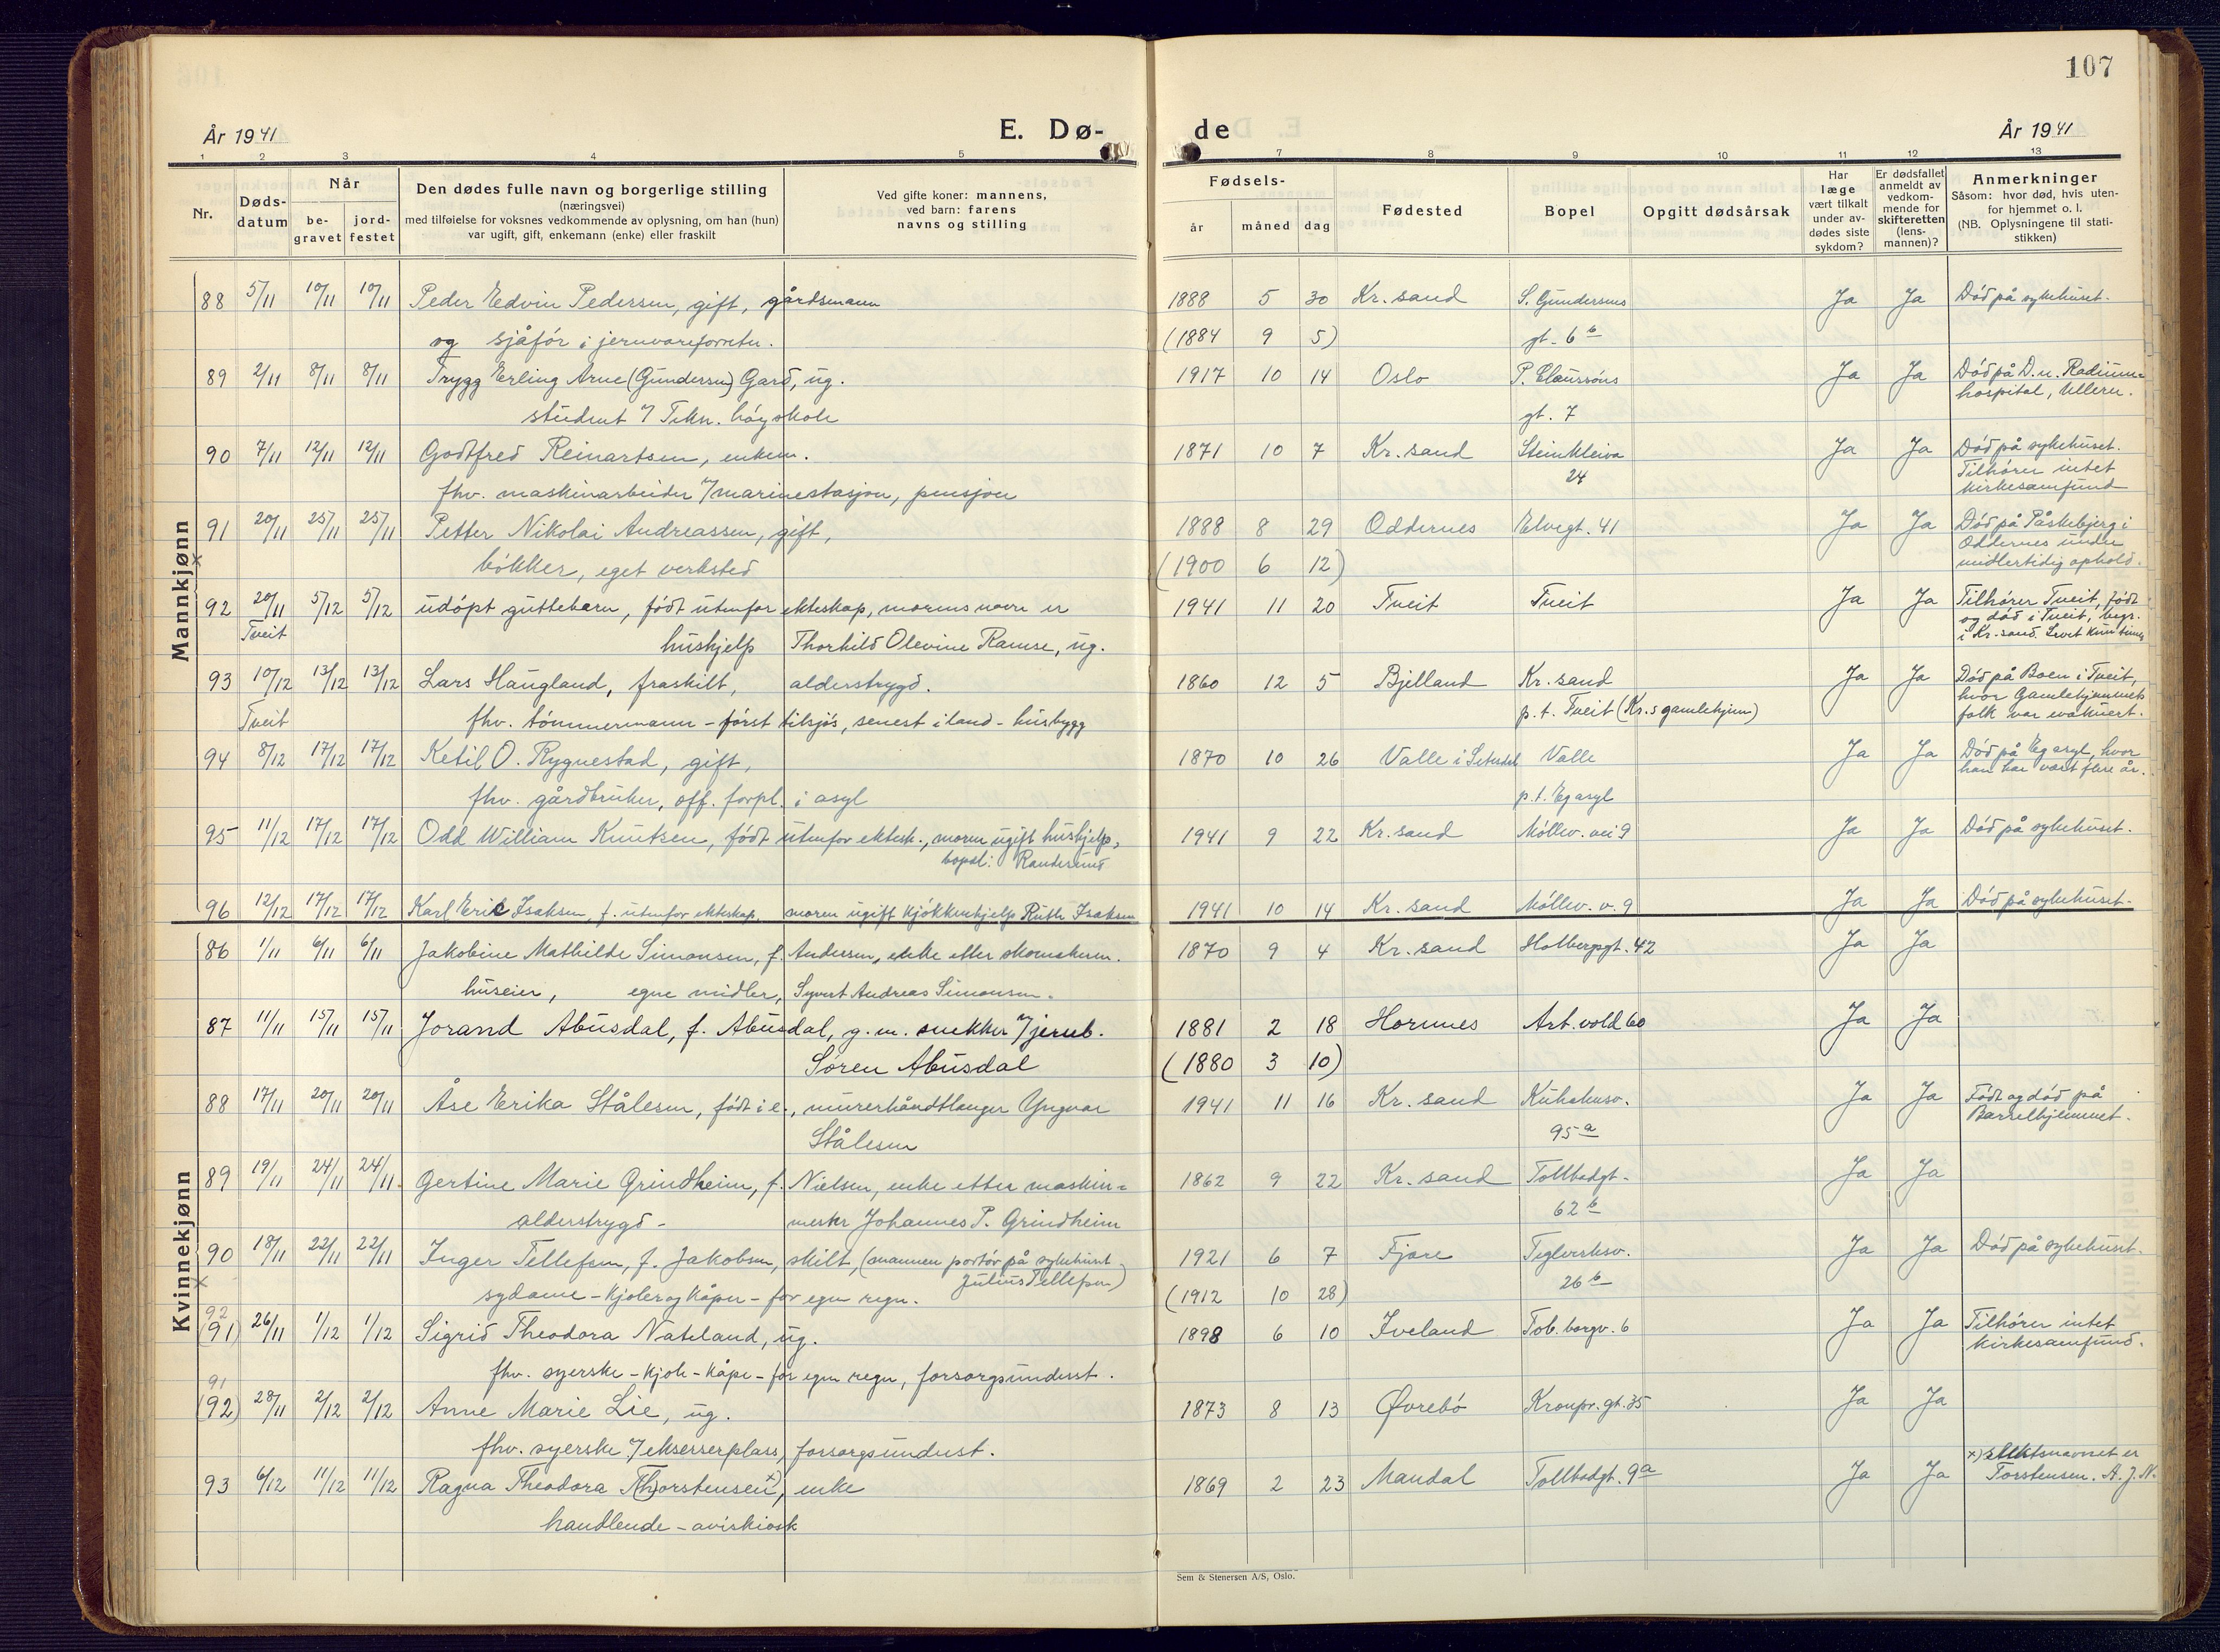 107
År 1941
E. Dø-
de
År 1941
1 2 3 4 5 7 8 9 10 11 12 13
Nr.
Døds-
datum
Når
be-
gravet
jord-
festet
Den dødes fulle navn og borgerlige stilling
(næringsvei)
med tilføielse for voksnes vedkommende av oplysning, om han (hun)
var ugift, gift, enkemann (enke) eller fraskilt
Ved gifte koner: mannens,
ved barn: farens
navns og stilling
Fødsels-
år måned dag
Fødested
Bopel
Opgitt dødsårsak
Har
læge
vært tilkalt
under av-
dødes siste
sykdom?
Er dødsfallet
anmeldt av
vedkom-
mende for
skifteretten
(lens-
mannen)?
Anmerkninger
Såsom: hvor død, hvis uten-
for hjemmet o. l.
(NB. Oplysningene til stati-
stikken)
Mannkjønn
88 5/11 10/11 10/11 Peder Edvin Pedersen, gift, gårdsmann 1888 5 30 Kr. sand S. Gundersens Ja Ja Død på sykehuset.
og sjåfør i jernvareforretn. (1884 9 5) gt. 6 b
89 2/11 8/11 8/11 Trygg Erling Arne (Gundersen) Gard, ug. 1917 10 14 Oslo P. Claussøns Ja Ja Død på D. n. Radium-
student v/ Tekn. høyskole gt. 7 hospital, Ullern.
90 7/11 12/11 12/11 Godtfred Reinartsen, enkem. 1871 10 7 Kr. sand Steinkleiva Ja Ja Død på sykehuset.
fhv. maskinarbeider v/marinestasjon, pensjon 24 Tilhører intet
kirkesamfund
91 20/11 25/11 25/11 Petter Nikolai Andreassen, gift, 1888 8 29 Oddernes Elvegt. 41 Ja Ja Død på Påskebjerg i
bøkker, eget verksted (1900 6 12) Oddernes under
midlertidig ophold.
92 20/11 5/12 5/12 udøpt guttebarn, født utenfor ekteskap, morens navn er 1941 11 20 Tveit Tveit Ja Ja Tilhører Tveit, født
Tveit hushjelp Thorhild Olevine Ramse, ug. og død i Tveit, begr.
i Kr. sand. Levet kun timer
93 10/12 13/12 13/12 Lars Haugland, fraskilt, alderstrygd. 1860 12 5 Bjelland Kr. sand Ja Ja Død på Boen i Tveit,
Tveit fhv. tømmermann - først tilsjøs, senest i land - husbygg p. t. Tveit (Kr.s gamlehjem) hvor Gamlehjemmets
folk var evakuert.
94 8/12 17/12 17/12 Ketil O. Rygnestad, gift, 1870 10 26 Valle i Setesdal Valle Ja Ja Død på Eg asyl, hvor
fhv. gårdbruker, off. forpl. i asyl p. t. Eg asyl han har vært flere år.
95 11/12 17/12 17/12 Odd William Knutsen, født utenfor ektesk., moren ugift hushjelp, 1941 9 22 Kr. sand Møllev. vei 9 Ja Ja Død på sykehuset.
bopel: Randesund
96 12/12 17/12 17/12 Karl Eric Isaksen, f. utenfor ekteskap, moren ugift kjøkkenhjelp Ruth Isaksen 1941 10 14 Kr. sand Møllev. v. 9 Ja Ja Død på sykehuset.
Kvinnekjønn
86 1/11 6/11 6/11 Jakobine Mathilde Simonsen, f. Andersen, enke etter skomakerm. 1870 9 4 Kr. sand Holbergsgt. 42 Ja Ja
huseier, egne midler, Syvert Andreas Simonsen.
87 11/11 15/11 15/11 Jorand Abusdal, f. Abusdal, g. m. snekker v/jernb. 1881 2 18 Hornnes Art. vold 60 Ja Ja
Søren Abusdal (1880 3 10)
88 17/11 20/11 20/11 Åse Erika Stålesen, født i e., murerhåndtlanger Yngvar 1941 11 16 Kr. sand Kuholmsv. Ja Ja Født og død på
Stålesen 95 a Barselhjemmet.
89 19/11 24/11 24/11 Gertine Marie Grindheim, f. Nielsen, enke etter maskin- 1862 9 22 Kr. sand Tollbodgt. Ja Ja
alderstrygd - mester Johannes P. Grindheim 62 b
90 18/11 22/11 22/11 Inger Tellefsen, f. Jakobsen, skilt, (mannen portør på sykehuset 1921 6 7 Fjære Teglverksv. Ja Ja Død på sykehuset.
Julius Tellefsen)
sydame - kjoler og kåper - for egen regn. (1912 10 28) 26 b
92
(91) 26/11 1/12 1/12 Sigrid Theodora Nateland, ug. 1898 6 10 Iveland Tob. borgv. 6 Ja Ja Tilhører intet
fhv. syerske - kjole - kåpe - for egen regn, forsorgsunderst. kirkesamfund.
91
(92) 28/11 2/12 2/12 Anne Marie Lie, ug. 1873 8 13 Øvrebø Kronpr. gt. 35 Ja Ja
fhv. syerske v/ ekserserplass, forsorgsunderst.
93 6/12 11/12 11/12 Ragna Theodora T(h)orstensen x), enke 1869 2 23 Mandal Tollbodgt. 9a Ja Ja x) slektsnavnet er
Torstensen. A. J. N.
handlende - aviskiosk
Sem & Stenersen A/S, Oslo.